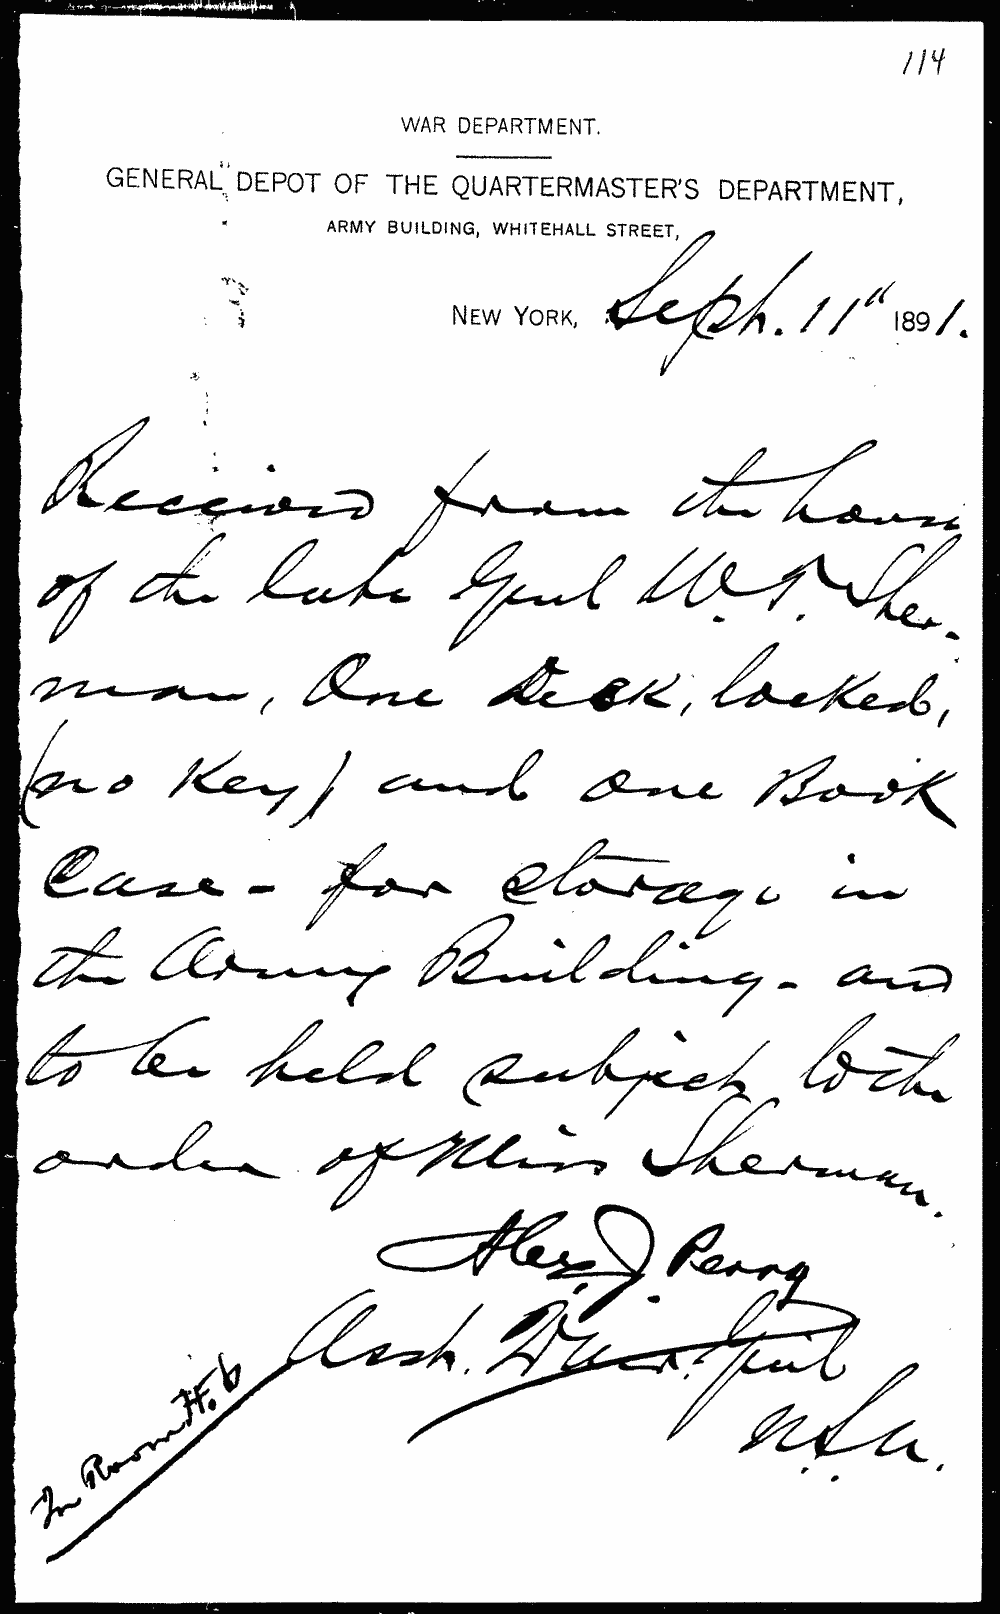 114
WAR DEPARTMENT.
GENERAL DEPOT OF THE QUARTERMASTER'S DEPARTMENT,
ARMY BUILDING, WHITEHALL STREET,
NEW YORK, Sept. 11" 1891.
Received from the house
of the late Genl W. T. Sher-
man, One Desk, locked,
(no Key) and one Book
Case - for storage in
the Army Building - and
to be held subject to the
order of Miss Sherman.
Alex. J. Perry
Asst. Qr Mr. Genl
U.S.A.
In Room H. 6